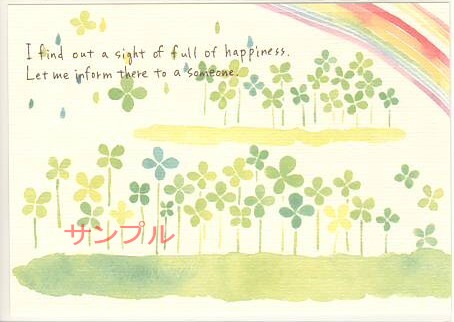 I find out a sight of full of happiness.
Let me inform there to a someone.
サンプル